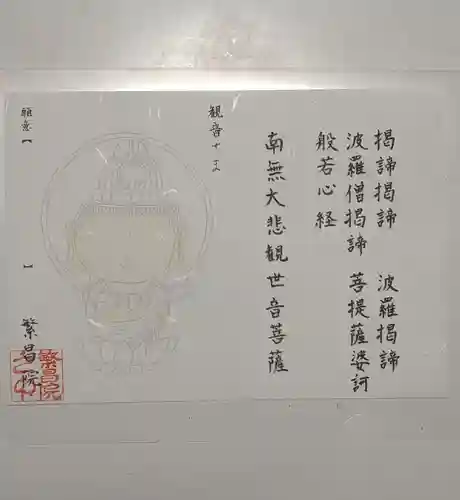 揭諦揭諦 波羅揭諦
波羅僧揭諦 菩提薩婆訶
般若心経
南無大悲観世音菩薩
観音さま
願意【 】
繁昌院
繁昌院